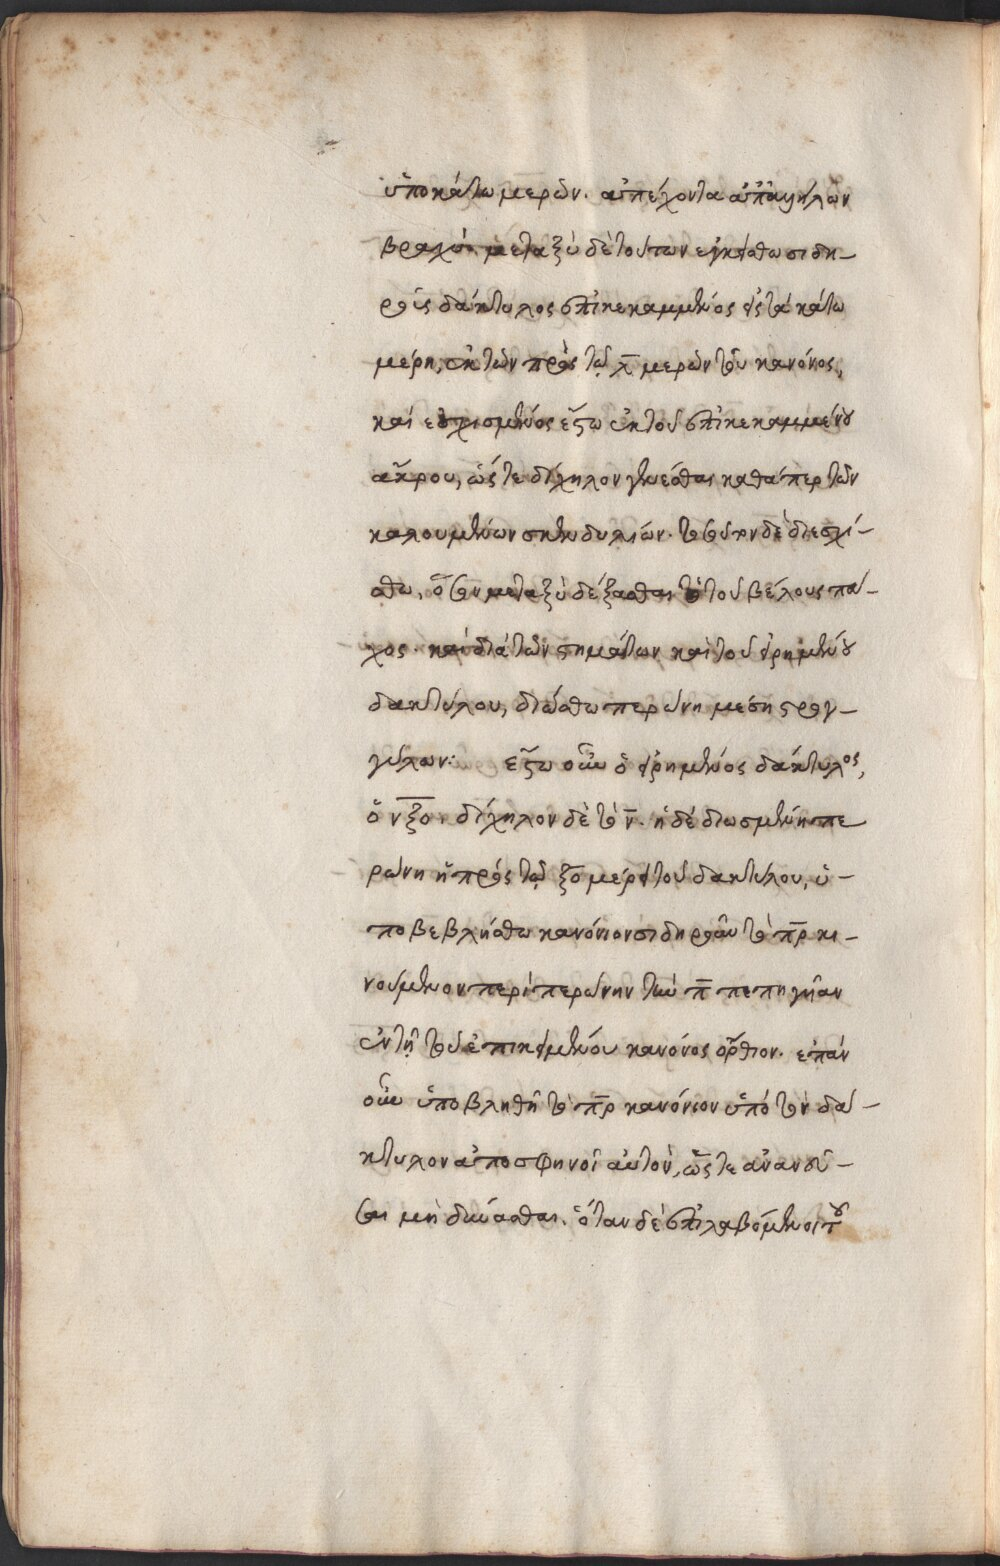 ὑποκάτω μερῶν. ἀπέχοντα ἀπ' ἀλλήλων
βραχύ. μεταξὺ δὲ τούτων ἐγκείσθω σιδη-
ροῦς δάκτυλος ἐπικεκαμμένος εἰς τὰ κάτω
μέρη, ἐκ τῶν πρὸς τῷ λ̅ μερῶν τοῦ κανόνος,
καὶ ἐσχισμένος ἔξω ἐκ τοῦ ἐπικεκαμμένου
ἄκρου, ὥστε δίχηλον γενέσθαι καθάπερ τῶν
καλουμένων σκενδυλίων. τοσοῦτον δὲ διεσχί-
σθω, ὅσον μεταξὺ δέξασθαι τὸ τοῦ βέλους πά-
χος. καὶ διὰ τῶν στημάτων καὶ τοῦ εἰρημένου
δακτύλου, διώσθω περόνη μέση στρογ-
γύλων: ἔξω οὖν ὁ εἰρημένος δάκτυλος,
ὁ ν̅ξ̅ο̅. δίχηλον δὲ τὸ ν̅. ἡ δὲ διωσμένη πε
ρώνη ἡ πρὸς τῷ ξ̅ο̅ μέρει τοῦ δακτύλου, ὑ-
ποβεβλήσθω κανόνιον σιδηροῦν τὸ π̅ρ̅ κι-
νούμενον περὶ περώνην τὴν π̅ πεπηγῖαν
ἐν τῇ τοῦ ἐπικειμένου κανόνος ὄρθιον. ἐπὰν
οὖν ὑποβληθῇ τὸ π̅ρ̅ κανόνιον ὑπὸ τὸν δά-
κτυλον ἀποσφηνοῖ αὐτὸν, ὥστε ἀνανεῦ-
σαι μὴ δύνασθαι. ὅταν δὲ ἐπιλαβόμενοι τοῦ